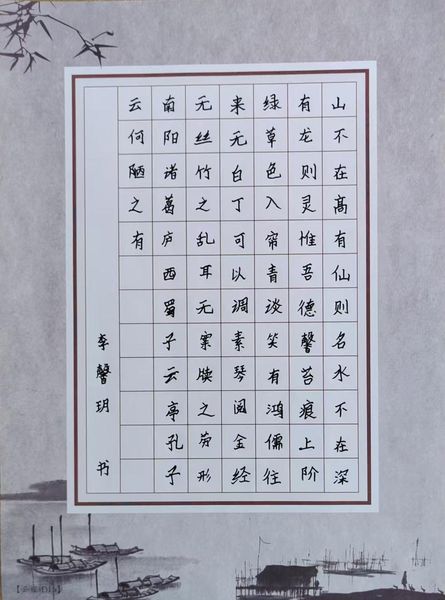 山不在高有仙则名水不在深
有龙则灵惟吾德馨苔痕上阶
绿草色入帘青谈笑有鸿儒往
来无白丁可以调素琴阅金经
无丝竹之乱耳无案牍之劳形
南阳诸葛庐西蜀子云亭孔子
云何陋之有
李馨玥 书